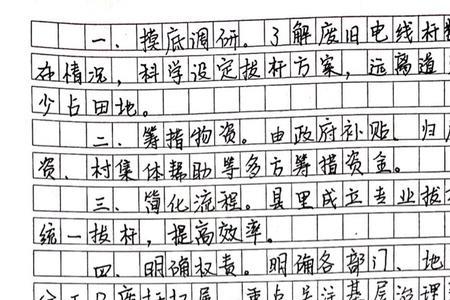 一、摸底调研。了解废旧电线杆
在情况，科学设定拔杆方案，远离道
少占田地。
二、筹措物资。由政府补贴、归
资、村集体帮助等多方筹措资金。
三、简化流程。县里成立专业拔
统一拔杆，提高效率。
四、明确权责。明确各部门、地
重点关注基层治理